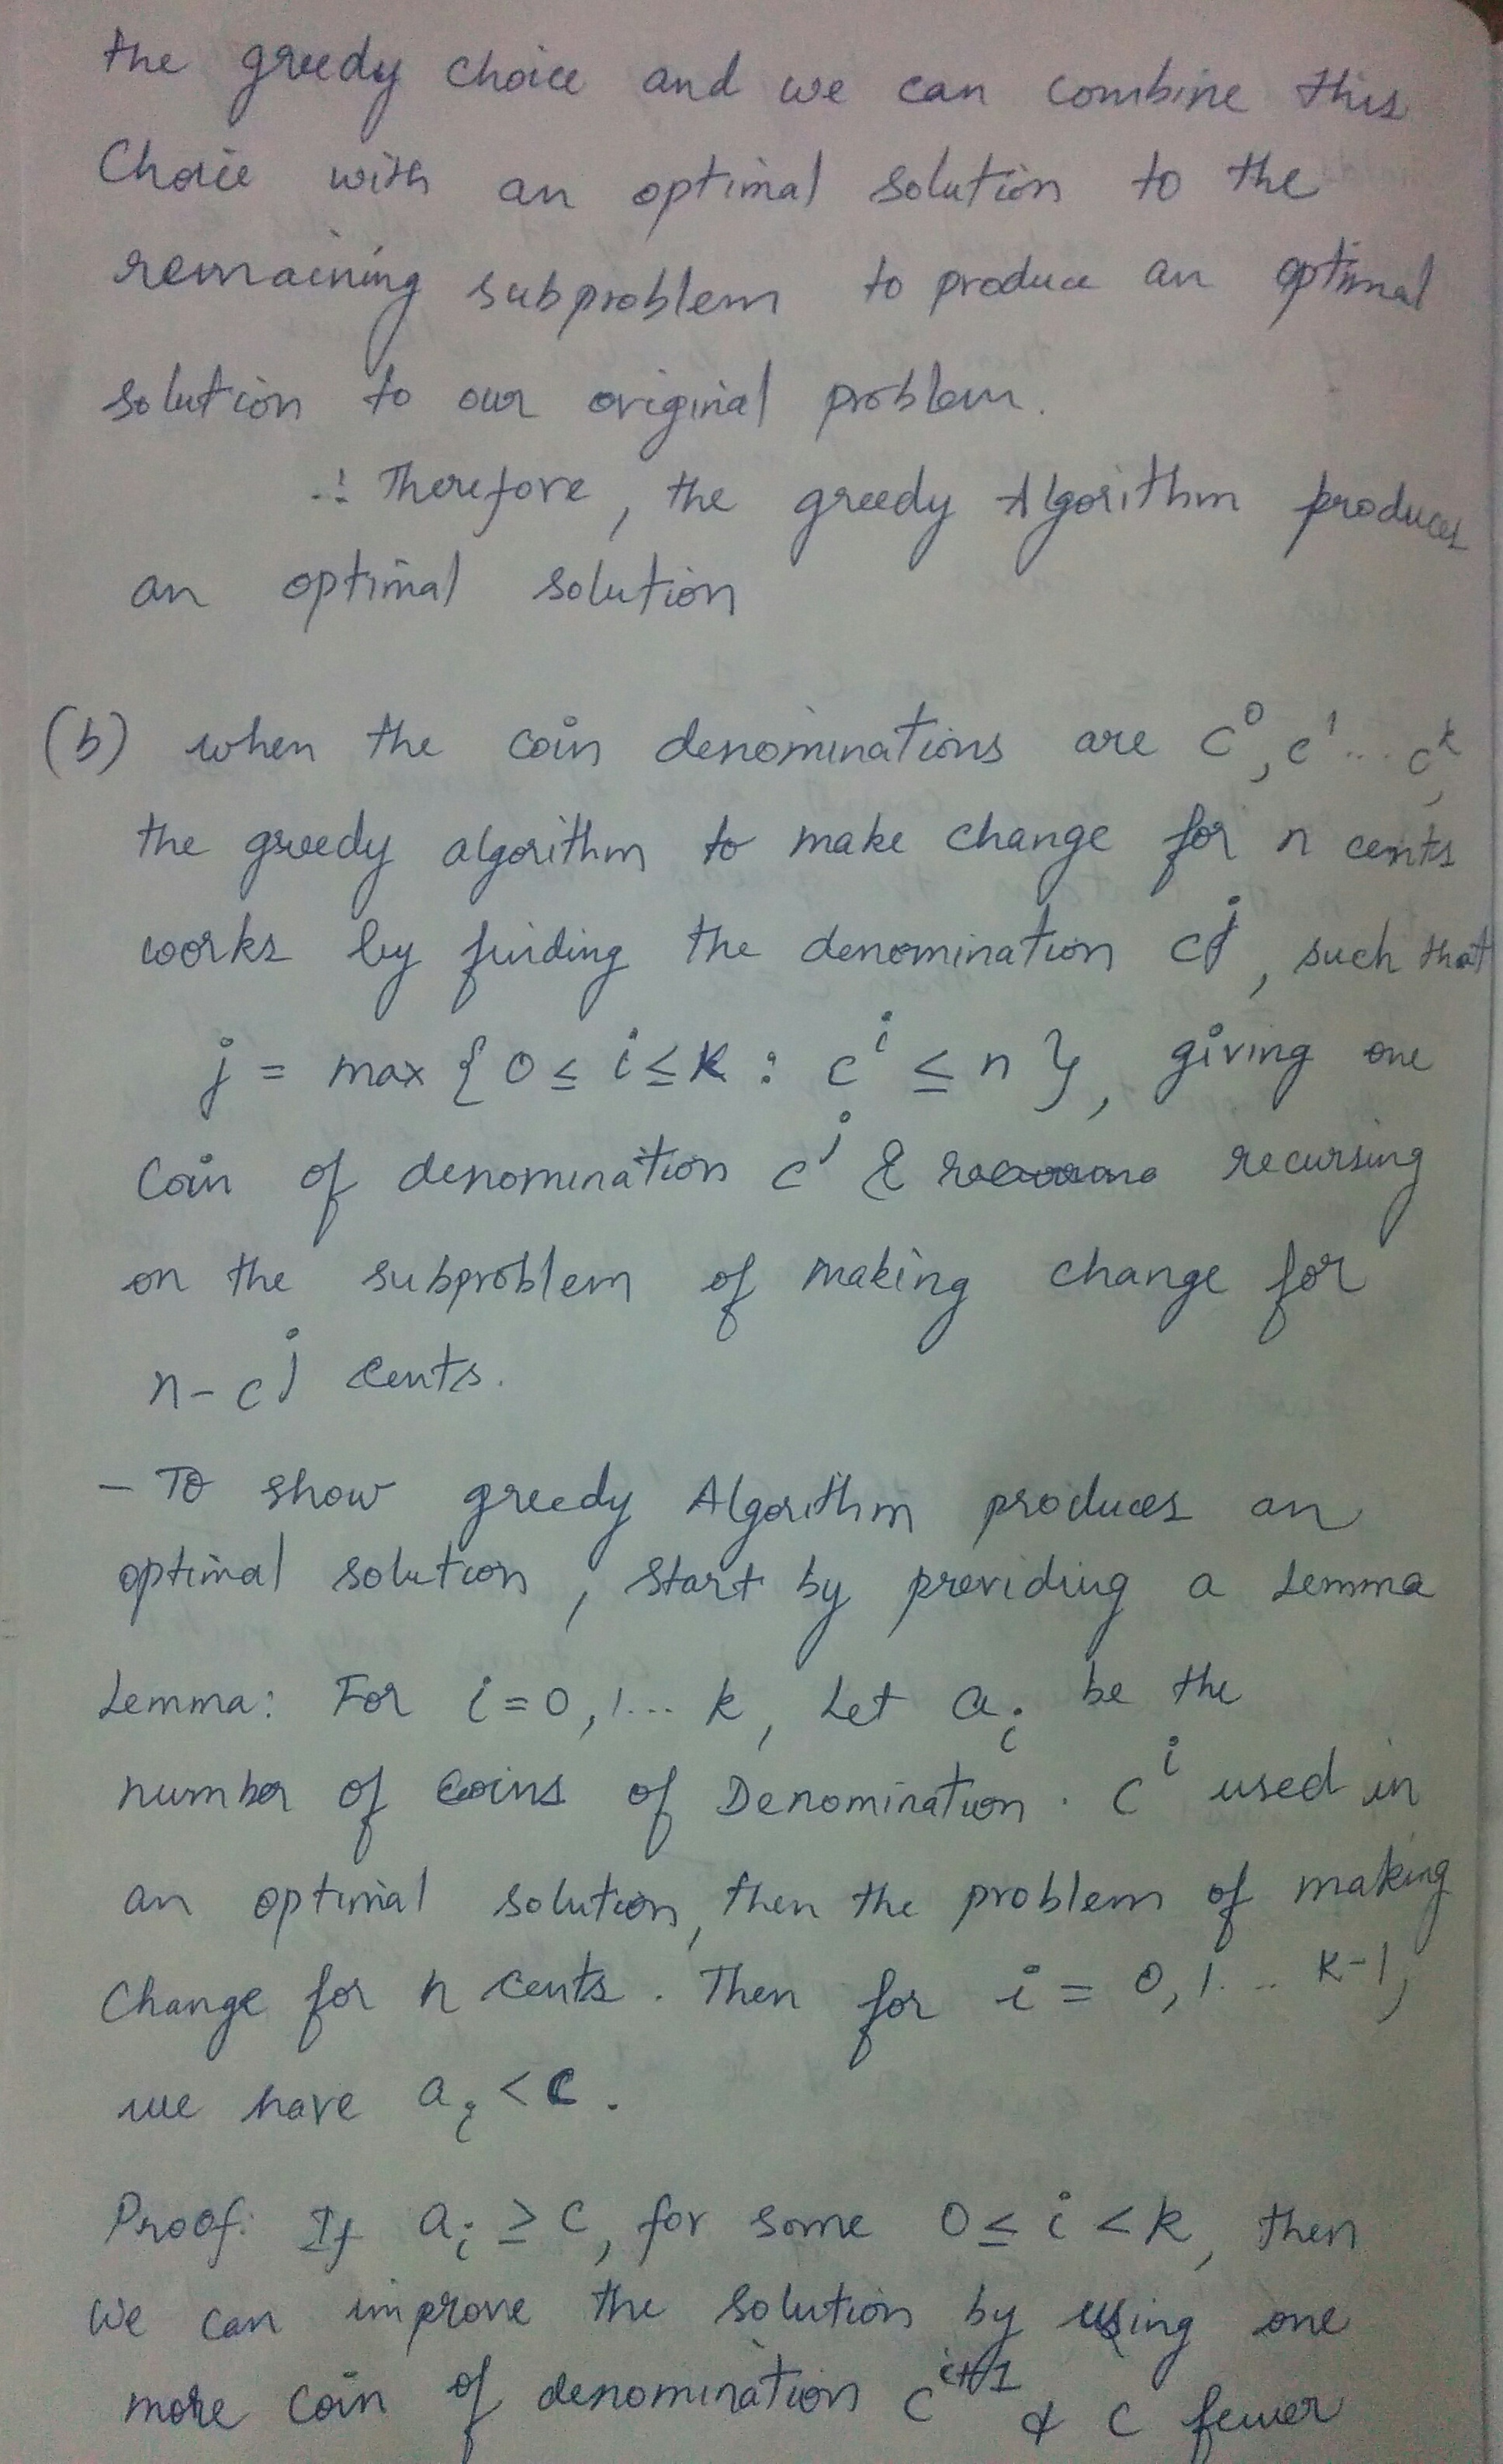 the greedy choice and we can combine this
Choice with an optimal solution to the
remaining subproblem to produce an optimal
solution to our original problem.
∴ Therefore, the greedy Algorithm produces
an optimal solution
(b) when the coin denominations are c⁰, c¹ ... cᵏ,
the greedy algorithm to make change for n cents
works by finding the denomination cʲ, such that
j = max { 0 ≤ i ≤ k : cⁱ ≤ n }, giving one
Coin of denomination cʲ & recursing
on the subproblem of making change for
n - cʲ cents.
- To show greedy Algorithm produces an
optimal solution, start by providing a Lemma
Lemma: For i = 0, 1... k, Let aᵢ be the
number of coins of Denomination . cⁱ used in
an optimal solution, then the problem of making
Change for n cents. Then for i = 0, 1... k-1,
we have aᵢ < c.
Proof: If aᵢ ≥ c, for some 0 ≤ i < k, then
We can improve the solution by using one
more Coin of denomination cⁱ⁺¹ & c fewer